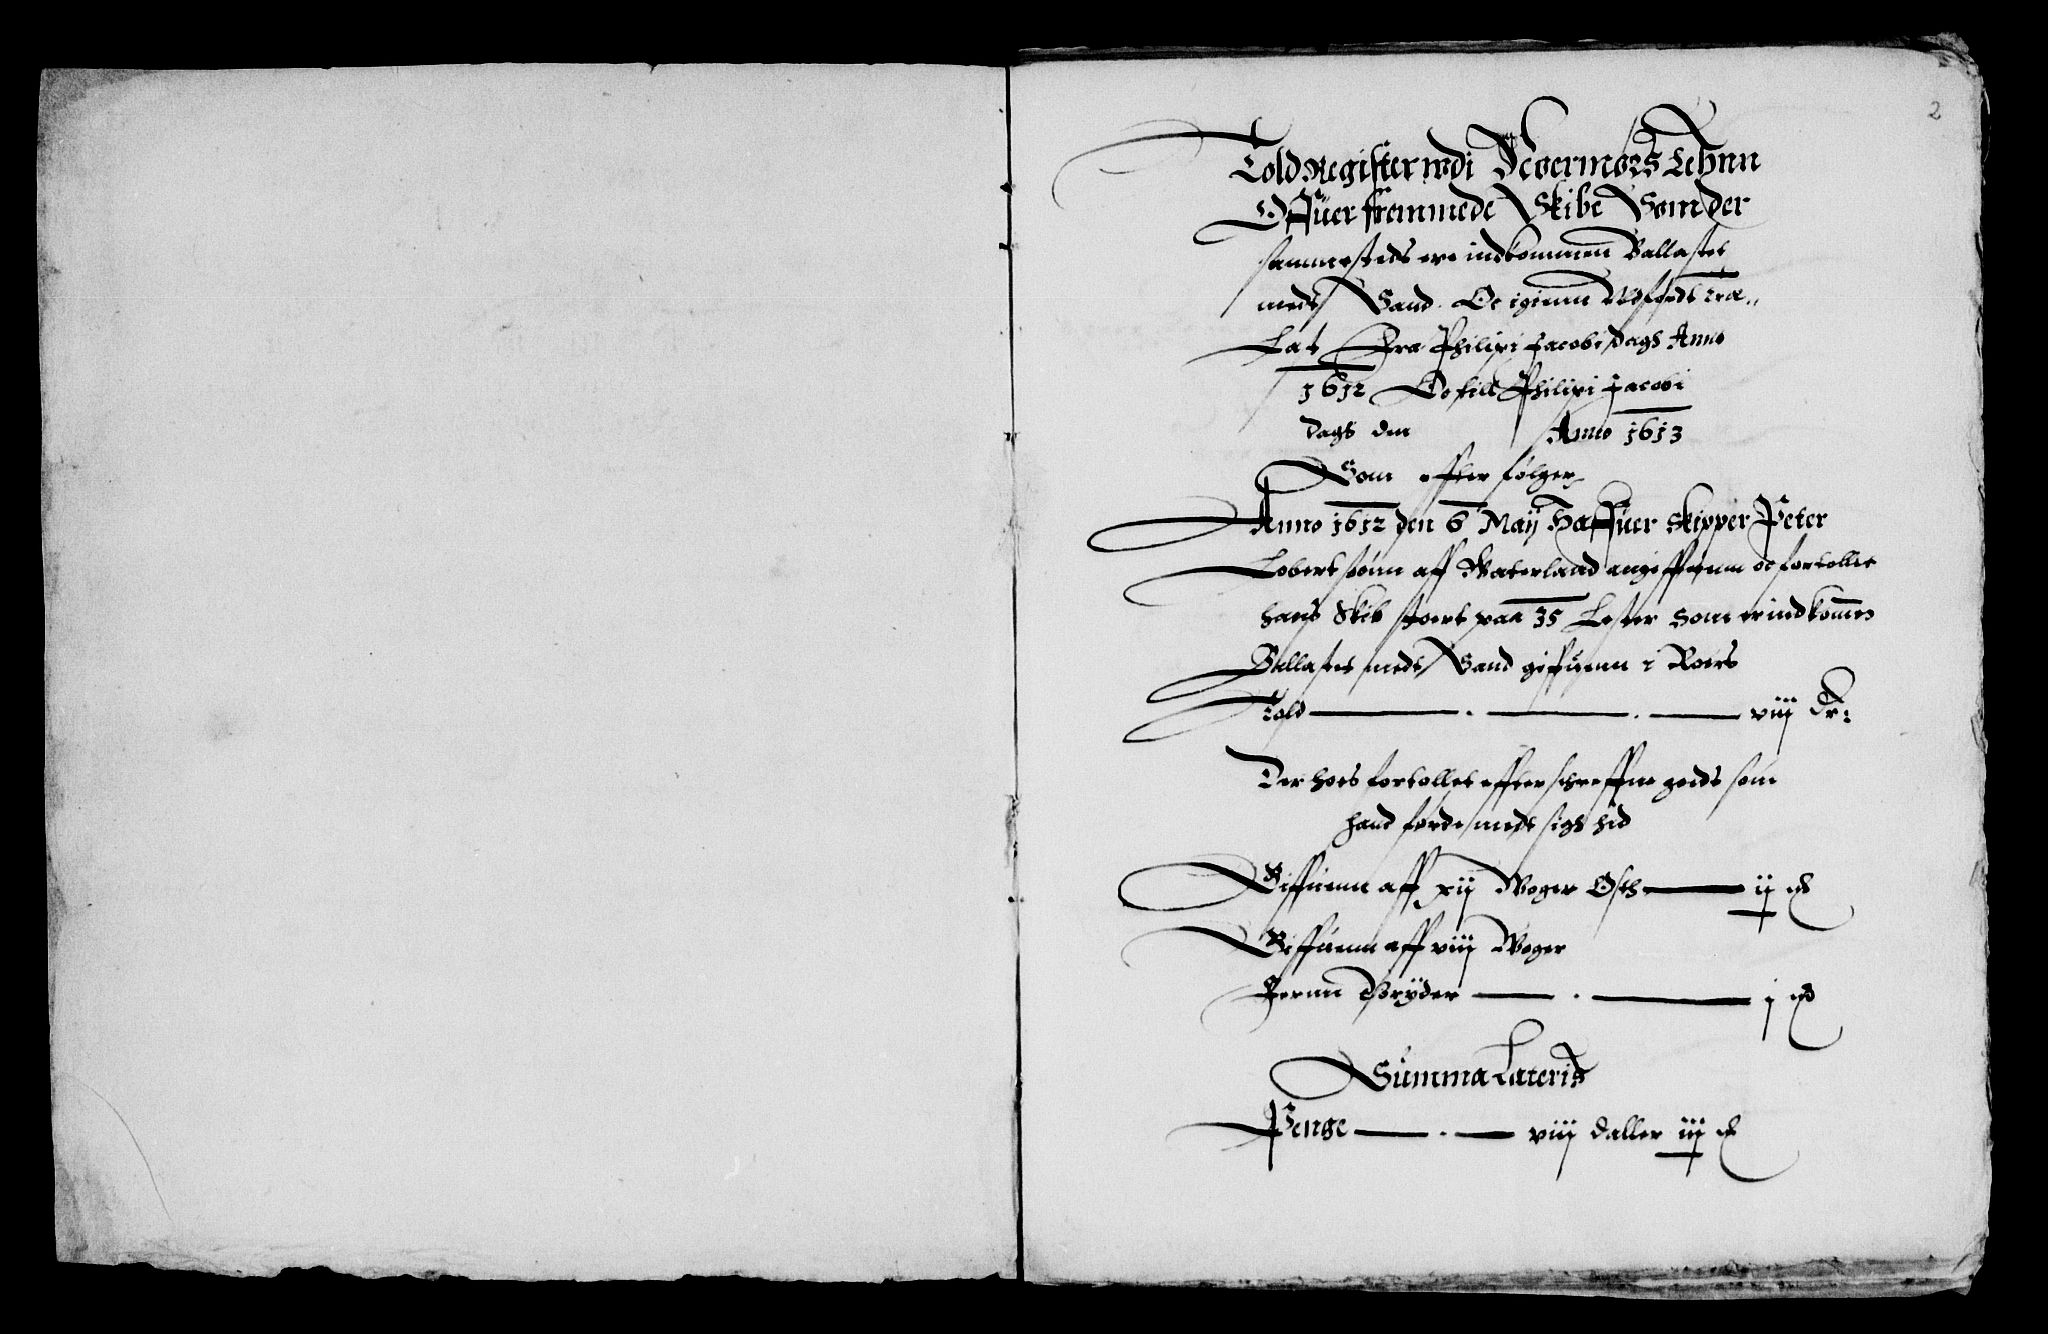 2
Told Register wdi Degermøes Lehnn
Offuer fremmede Skibe Som der
sammesteds ere indkommen Ballastet
meds Sand. Oc igienn Udførdt træ„
Last Fra Philipi Jacobi dags Anno
1612 Oc till Philipi Jacobi
dags den Anno 1613
Som effter følger
Anno 1612 den 6 Maij Haffuer Skipper Peter
Lobertsøenn aff Waterland angiffuenn oc fortollet
hans Skib stoert paa 35 Lester Som er indkommen
Ballastet meds Sand giffuenn i Roers
Told — . — . — viij Dr:
Der hoes fortollet effterschreffne goeds som
hand førde meds sigh hid
Giffuenn aff xij Woger Osth — ij
Giffuenn aff viij Woger
Jernn Gryder — . — j
Summa Lateris
Penge — . — viij daller iij